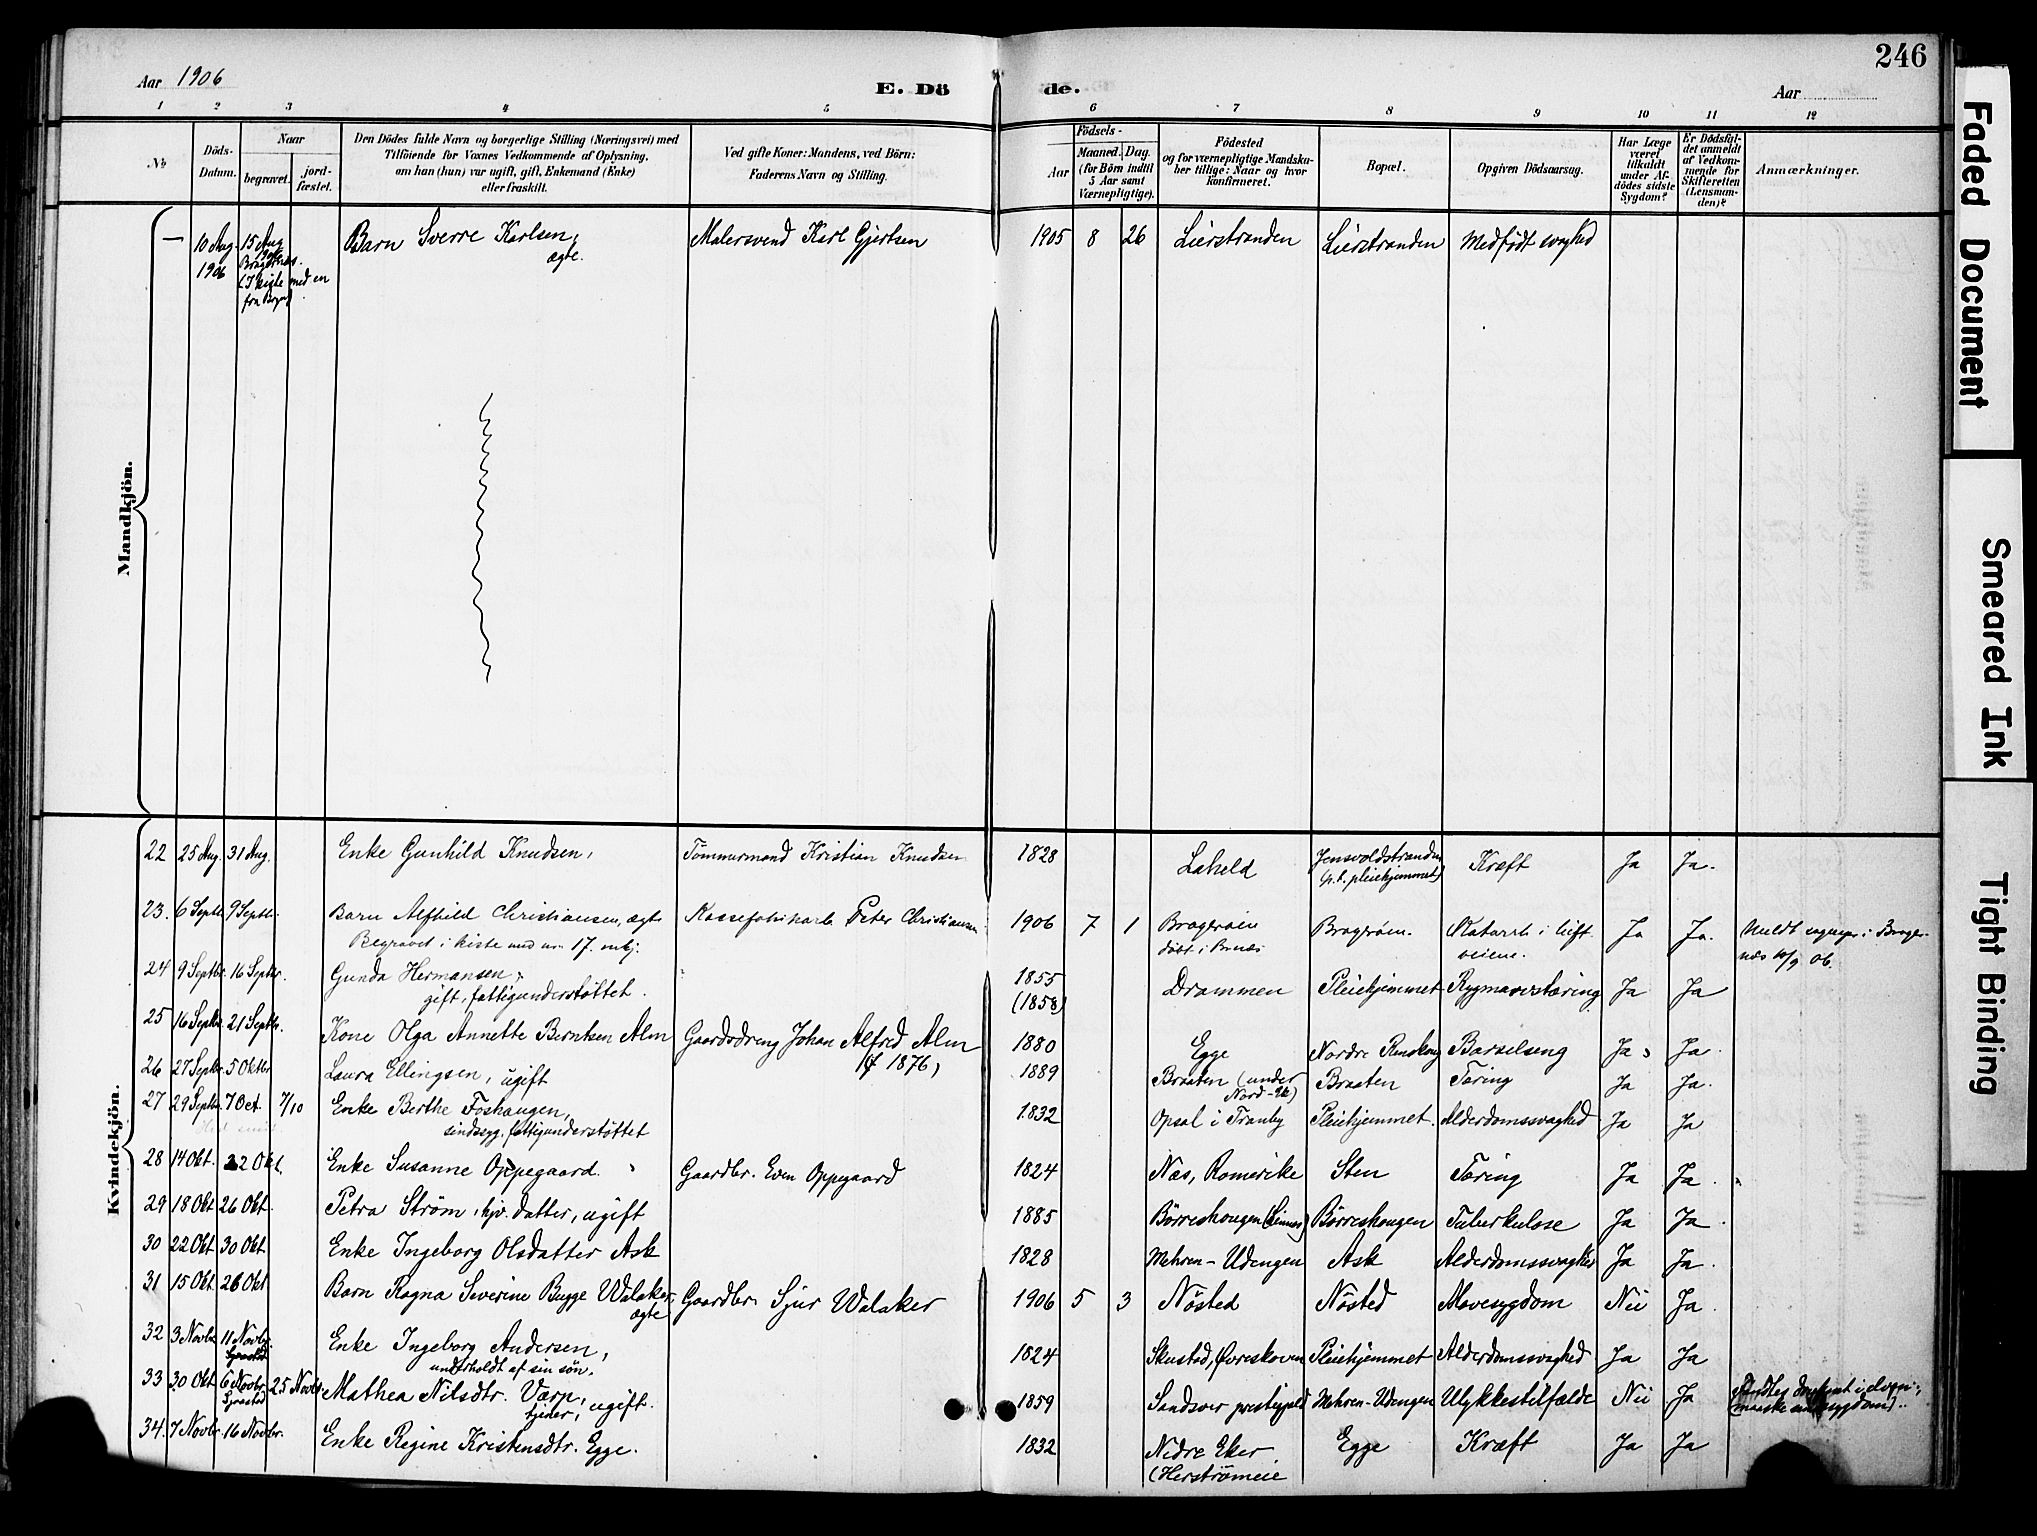 246
Aar 1906
E. Dö de.
Aar
1 2 3 4 5 6 7 8 9 10 11 12
No
Döds-Datum.
Naar
begravet.
jord-fæstet.
Den Dödes fulde Navn og borgerlige Stilling (Næringsvei) med
Tilföiende for Voxnes Vedkommende af Oplysning,
om han (hun) var ugift, gift, Enkemand (Enke)
eller fraskilt.
Ved gifte Koner: Mandens, ved Börn:
Faderens Navn og Stilling.
Födsels-
Aar
Maaned. Dag.
(for Börn indtil
5 Aar samt
Værnepligtige).
Födested
og for værnepligtige Mandska-
ber tillige: Naar og hvor
konfirmeret.
Bopæl.
Opgiven Dödsaarsag.
Har Læge
været
tilkaldt
under Af-
dödes sidste
Sygdom?
Er Dödsfal-
det anmeldt
af Vedkom-
mende for
Skifteretten
(Lensman-
den)?
Anmærkninger.
Mandkjön.
— 10 Aug. 1906 15 Aug Barn Sverre Karlsen, ægte. Malersvend Karl Gjertsen 1905 8 26 Lierstranden Lierstranden Medfödt svaghed
Bragernæs.
(I kiste med en
Kvindekjön.
22 25 Aug. 31 Aug. Enke Gunhild Knudsen, Tömmermand Kristian Knudsen 1828 Laheld Jensvoldstranden (p.t. pleiehjemmet) Kræft Ja Ja.
23. 6 Septb. 9 Septb. Barn Alfhild Christiansen, ægte Peter Christiansen 1906 7 1 Brageröen Brageröen. Katarrh i luft-veiene. Ja Ja.
Begravet i kiste med no 17. mkj.
24 9 Septbr. 16 Septbr. Gunda Hermansen, gift, fattigunderstøttet. 1855 (1858) Drammen Pleiehjemmet Rygmarvstæring Ja Ja
25 16 Septbr 21 Septb. Kone Olga Annette Berntsen Alm Gaardsdreng Johan Alfred Alm (f 1876) 1880 Egge Nordre Renskoug Barselseng Ja Ja.
26 27 Septbr 5 Oktbr Laura Ellingsen, ugift 1889 Braaten (under Nord-Eg) Braaten Tæring Ja Ja.
27 29 Septbr. 7 Oct. 7/10 Enke Berthe Foshaugen, sindssyg, fattigunderstøttet 1832 Opsal i Tranby Pleiehjemmet. Alderdomssvaghed Ja Ja
28 14 Okt. 22 Okt. Enke Susanne Oppegaard. Gaardbr. Even Oppegaard 1824 Næs, Romerike Sten Tæring Ja Ja.
29 18 Okt 26 Okt. Petra Strøm, hjv. datter, ugift 1885 Börreshougen Börreshougen Tuberkulose Ja Ja.
30 22 Okt. 30 Okt. Enke Ingeborg Olsdatter Ask 1828 Mehren-Udengen Ask Alderdomssvaghed Ja Ja.
31 15 Okt. 26 Okt Barn Ragna Severine Bugge Walaker, ægte Gaardbr. Sjur Walaker 1906 5 3 Nösted Nösted Mavesygdom Nei Ja.
32 3 Novbr 11 Novbr. Enke Ingeborg Andersen, underholdt af sin søn. 1824 Skustad, Øvreskoven Pleiehjemmet Alderdomssvaghed Ja Ja
33 30 Okt. 6 Novbr. Sjaastad 25 Novbr. Mathea Nilsdtr. Værp, tjener, ugift. 1859 Sandsvær prestegjeld Mehren-Udengen Ulykkestilfælde Nei Ja
34. 7 Novbr. 16 Novbr. Enke Regine Kristensdtr. Egge. 1832 Nedre Eker (Herströmeie Egge Kræft Ja Ja
Faded Document
Smeared Ink
Tight Binding